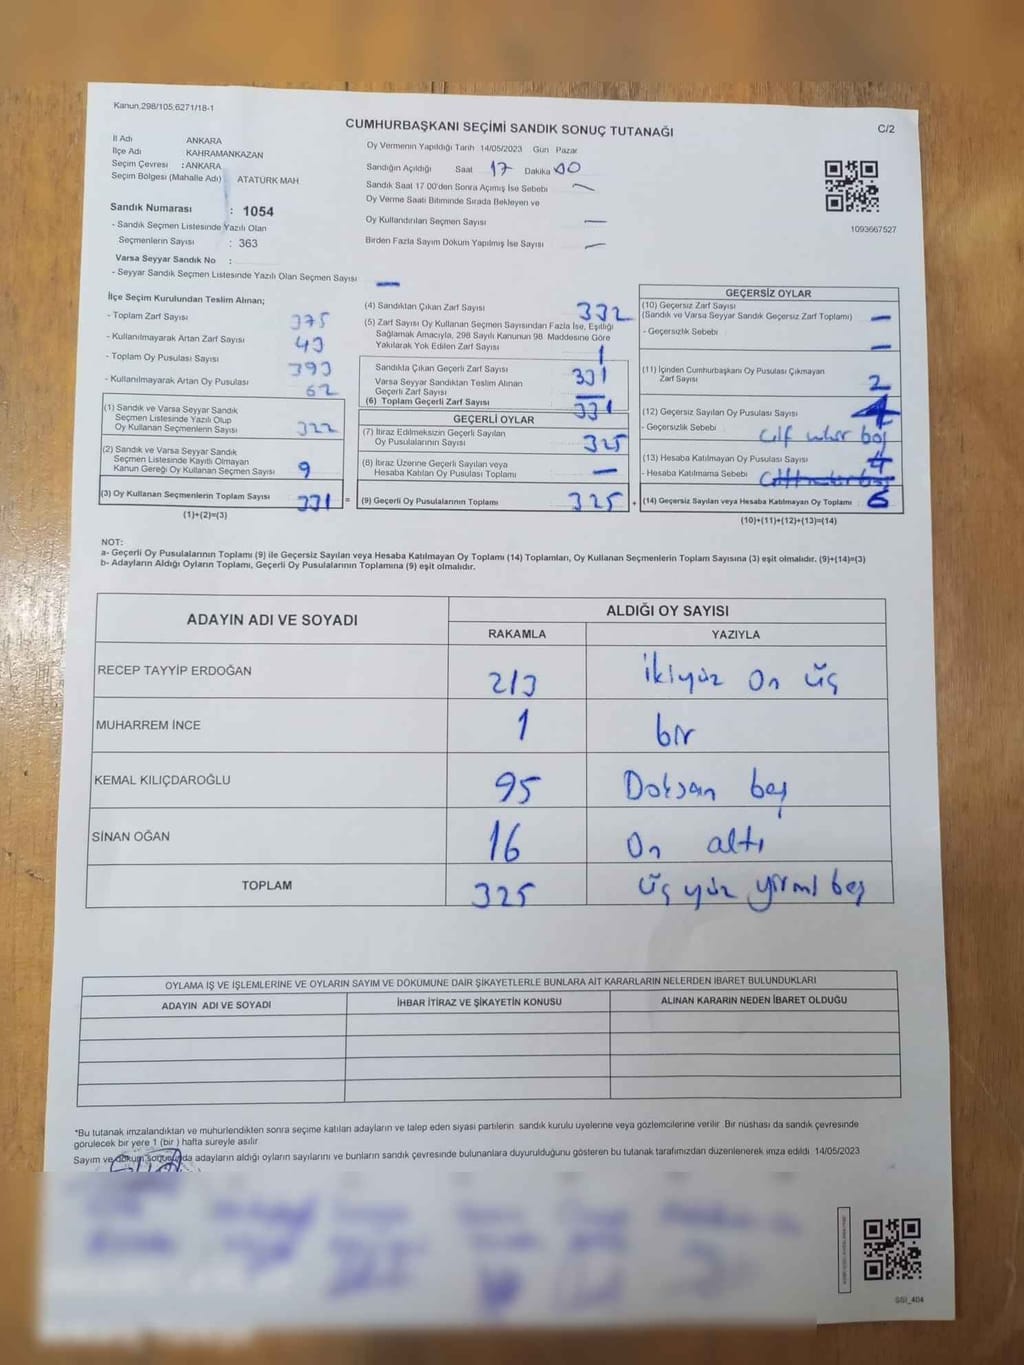 Kanun,298/105,6271/18-1
CUMHURBAŞKANI SEÇİMİ SANDIK SONUÇ TUTANAĞI
C/2
İl Adı ANKARA
İlçe Adı KAHRAMANKAZAN
Seçim Çevresi : ANKARA
Seçim Bölgesi (Mahalle Adı) ATATÜRK MAH
Sandık Numarası : 1054
- Sandık Seçmen Listesinde Yazılı Olan
Seçmenlerin Sayısı : 363
Varsa Seyyar Sandık No :
- Seyyar Sandık Seçmen Listesinde Yazılı Olan Seçmen Sayısı —
Oy Vermenin Yapıldığı Tarih 14/05/2023 Gün Pazar
Sandığın Açıldığı Saat 17 Dakika 00
Sandık Saat 17 00'den Sonra Açımış İse Sebebi —
Oy Verme Saati Bitiminde Sırada Bekleyen ve
Oy Kullandırılan Seçmen Sayısı —
Birden Fazla Sayım Döküm Yapılmış İse Sayısı —
1093667527
İlçe Seçim Kurulundan Teslim Alınan;
- Toplam Zarf Sayısı 375
- Kullanılmayarak Artan Zarf Sayısı 43
- Toplam Oy Pusulası Sayısı 393
- Kullanılmayarak Artan Oy Pusulası 62
(1) Sandık ve Varsa Seyyar Sandık
Seçmen Listesinde Yazılı Olup
Oy Kullanan Seçmenlerin Sayısı 322
(2) Sandık ve Varsa Seyyar Sandık
Seçmen Listesinde Kayıtlı Olmayan
Kanun Gereği Oy Kullanan Seçmen Sayısı 9
(3) Oy Kullanan Seçmenlerin Toplam Sayısı 331 =
(1)+(2)=(3)
(4) Sandıktan Çıkan Zarf Sayısı 332
(5) Zarf Sayısı Oy Kullanan Seçmen Sayısından Fazla İse, Eşitliği
Sağlamak Amacıyla, 298 Sayılı Kanunun 98. Maddesine Göre
Yakılarak Yok Edilen Zarf Sayısı 1
Sandıkta Çıkan Geçerli Zarf Sayısı 331
Varsa Seyyar Sandıktan Teslim Alınan
Geçerli Zarf Sayısı —
(6) Toplam Geçerli Zarf Sayısı 331
GEÇERLİ OYLAR
(7) İtiraz Edilmeksizin Geçerli Sayılan
Oy Pusulalarının Sayısı 325
(8) İtiraz Üzerine Geçerli Sayılan veya
Hesaba Katılan Oy Pusulası Toplamı —
(9) Geçerli Oy Pusulalarının Toplamı 325 +
GEÇERSİZ OYLAR
(10) Geçersiz Zarf Sayısı
(Sandık ve Varsa Seyyar Sandık Geçersiz Zarf Toplamı) —
- Geçersizlik Sebebi —
(11) İçinden Cumhurbaşkanı Oy Pusulası Çıkmayan
Zarf Sayısı 2
(12) Geçersiz Sayılan Oy Pusulası Sayısı 4
- Geçersizlik Sebebi
(13) Hesaba Katılmayan Oy Pusulası Sayısı
- Hesaba Katılmama Sebebi
(14) Geçersiz Sayılan veya Hesaba Katılmayan Oy Toplamı 6
(10)+(11)+(12)+(13)=(14)
NOT:
a- Geçerli Oy Pusulalarının Toplamı (9) ile Geçersiz Sayılan veya Hesaba Katılmayan Oy Toplamı (14) Toplamları, Oy Kullanan Seçmenlerin Toplam Sayısına (3) eşit olmalıdır. (9)+(14)=(3)
b- Adayların Aldığı Oyların Toplamı, Geçerli Oy Pusulalarının Toplamına (9) eşit olmalıdır.
ADAYIN ADI VE SOYADI ALDIĞI OY SAYISI
RAKAMLA YAZIYLA
RECEP TAYYİP ERDOĞAN 213 İkiyüz On üç
MUHARREM İNCE 1 bir
KEMAL KILIÇDAROĞLU 95 Doksan beş
SİNAN OĞAN 16 On altı
TOPLAM 325 üç yüz yirmi beş
OYLAMA İŞ VE İŞLEMLERİNE VE OYLARIN SAYIM VE DÖKÜMÜNE DAİR ŞİKAYETLERLE BUNLARA AİT KARARLARIN NELERDEN İBARET BULUNDUKLARI
ADAYIN ADI VE SOYADI İHBAR İTİRAZ VE ŞİKAYETİN KONUSU ALINAN KARARIN NEDEN İBARET OLDUĞU
*Bu tutanak imzalandıktan ve mühürlendikten sonra seçime katılan adayların ve talep eden siyasi partilerin sandık kurulu üyelerine veya gözlemcilerine verilir. Bir nüshası da sandık çevresinde
görülecek bir yere 1 (bir ) hafta süreyle asılır.
Sayım ve döküm sonucunda adayların aldığı oyların sayılarını ve bunların sandık çevresinde bulunanlara duyurulduğunu gösteren bu tutanak tarafımızdan düzenlenerek imza edildi. 14/05/2023
SSI_404